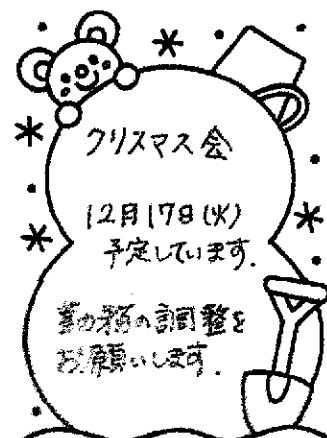 クリスマス会
12月17日(火)
予定しています.
勤務の調整を
お願いします.